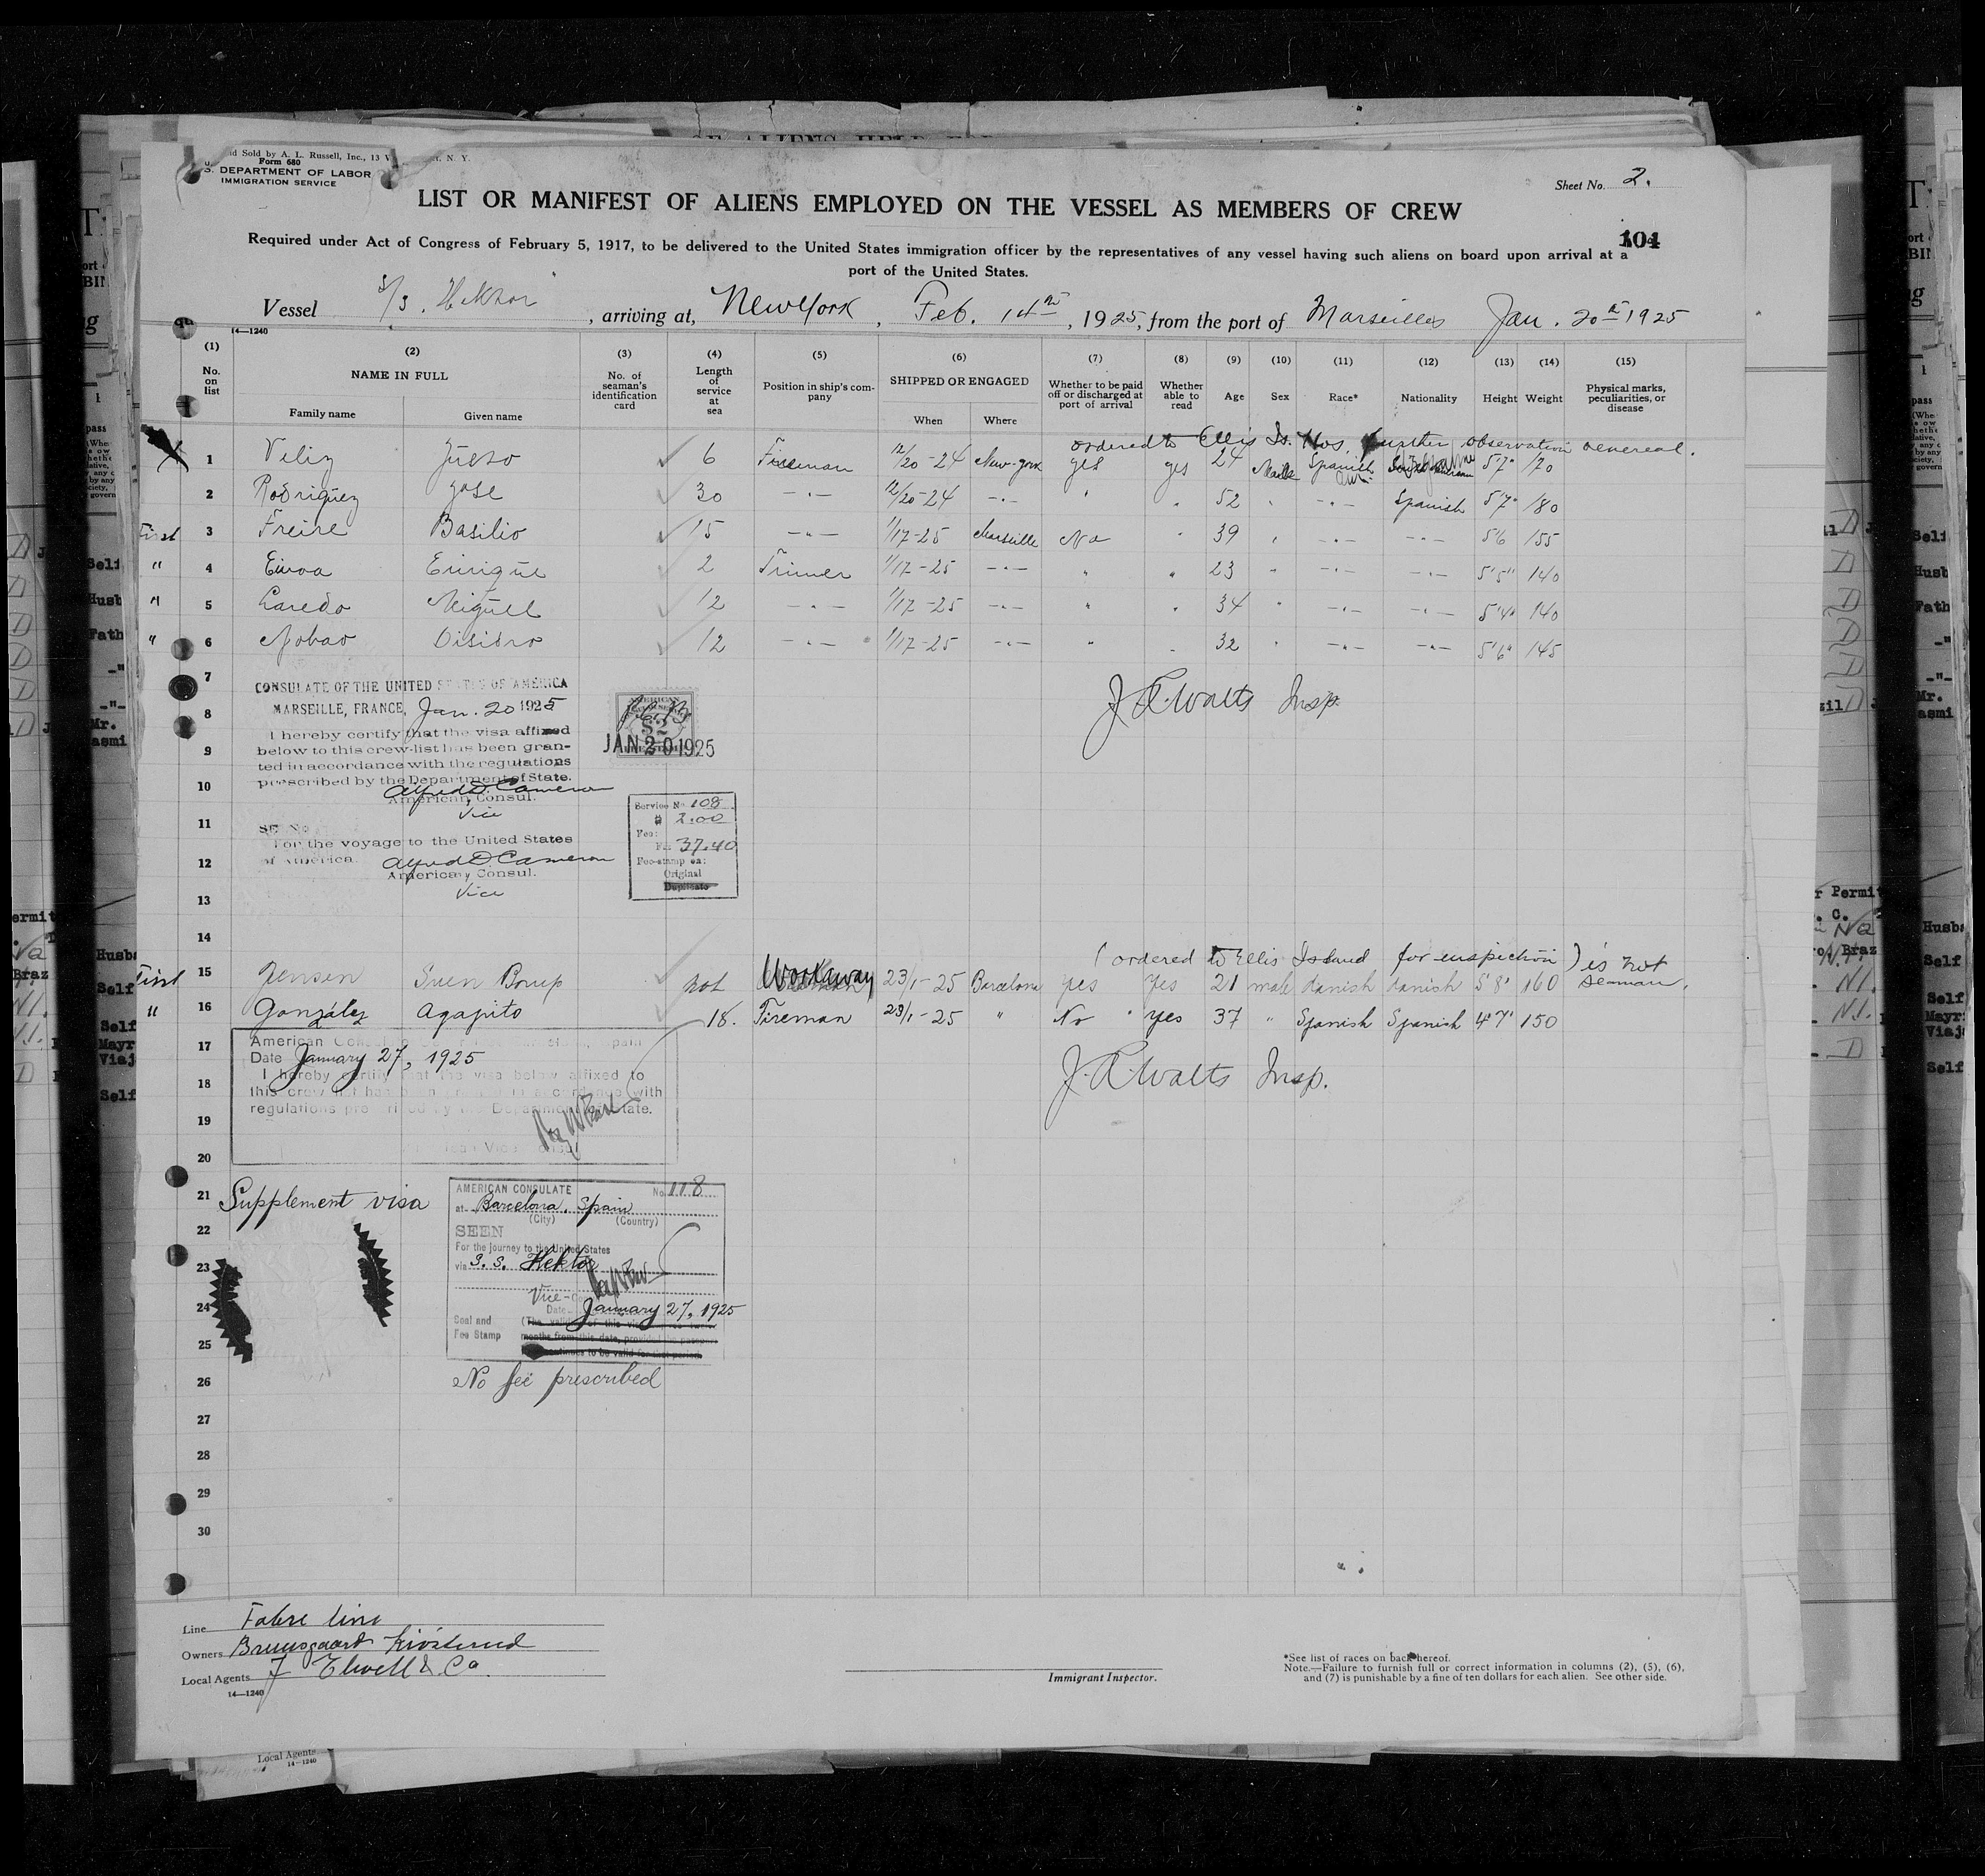 nd Sold by A. L. Russell, Inc., 13 N. Y.
Form 680
S. DEPARTMENT OF LABOR
IMMIGRATION SERVICE
Sheet No. 2.
LIST OR MANIFEST OF ALIENS EMPLOYED ON THE VESSEL AS MEMBERS OF CREW
Required under Act of Congress of February 5, 1917, to be delivered to the United States immigration officer by the representatives of any vessel having such aliens on board upon arrival at a
port of the United States.
104
Vessel S/S. Hektor, arriving at, New York, Feb. 14th, 1925, from the port of Marseilles Jan. 20th 1925
14—1240
(1) (2) (3) (4) (5) (6) (7) (8) (9) (10) (11) (12) (13) (14) (15)
No. on list
NAME IN FULL
Family name
Given name
No. of seaman's identification card
Length of service at sea
Position in ship's company
SHIPPED OR ENGAGED
When
Where
Whether to be paid off or discharged at port of arrival
Whether able to read
Age
Sex
Race*
Nationality
Height
Weight
Physical marks, peculiarities, or disease
ordered to Ellis Is. Hos, further observation venereal.
1 Veliz 6 Fireman 12/20-24 New-York yes yes 24 Male Spanish 5'7" 170
2 Rodriguez Jose 30 -.- 12/20-24 -.- " . 52 . -.- Spanish 5'7" 180
First 3 Freire Basilio 15 -.- 1/17-25 Marseille No " 39 , -.- -.- 5'6 155
" 4 Enrique 2 Trimer 1/17-25 -.- " " 23 " -.- -.- 5'5" 140
" 5 Laredo Miguel 12 -.- 1/17-25 -.- " . 34 " -.- -.- 5'4" 140
" 6 12 -.- 1/17-25 -.- " . 32 " -.- -.- 5'6" 145
7
CONSULATE OF THE UNITED STATES OF AMERICA
MARSEILLE, FRANCE, Jan. 20 1925
8
I hereby certify that the visa affixed
9
below to this crew-list has been gran-
ted in accordance with the regulations
prescribed by the Department of State.
10
Alfred D. Cameron
American Consul.
Vice
JAN 20 1925
J. R. Walts Insp.
Service No. 108
$ 2.00
Fee:
Fr. 37.40
Fee-stamp on:
Original
Duplicate
11
For the voyage to the United States
12
of America. Alfred D. Cameron
American Consul.
Vice
13
14
( ordered to Ellis Island for inspection ) is not
seaman.
First 15 Jensen Sven Borup not Workaway 23/1-25 Barcelona yes Yes 21 male danish danish 5'8" 160
" 16 González Agapito 18. Fireman 23/1-25 " No " yes 37 " Spanish Spanish 4'7" 150
17
Date January 27, 1925
I hereby certify that the visa below affixed to
18
this crew list has been in accordance with
regulations prescribed by the Department of State.
19
J. R. Walts Insp.
20
21 Supplement visa
AMERICAN CONSULATE No. 118
at Barcelona, Spain
(City) (Country)
22
SEEN
For the journey to the United States
23
via S. S. Hektor
Vice-
24
Date January 27, 1925
Seal and
Fee Stamp
25
26
No fee prescribed
27
28
29
30
Line Fabre line
Owners Bruusgaard Kiösterud
Local Agents J Elwell & Co.
14—1240
Immigrant Inspector.
*See list of races on back hereof.
Note.—Failure to furnish full or correct information in columns (2), (5), (6),
and (7) is punishable by a fine of ten dollars for each alien. See other side.
Local Agents
14—1240